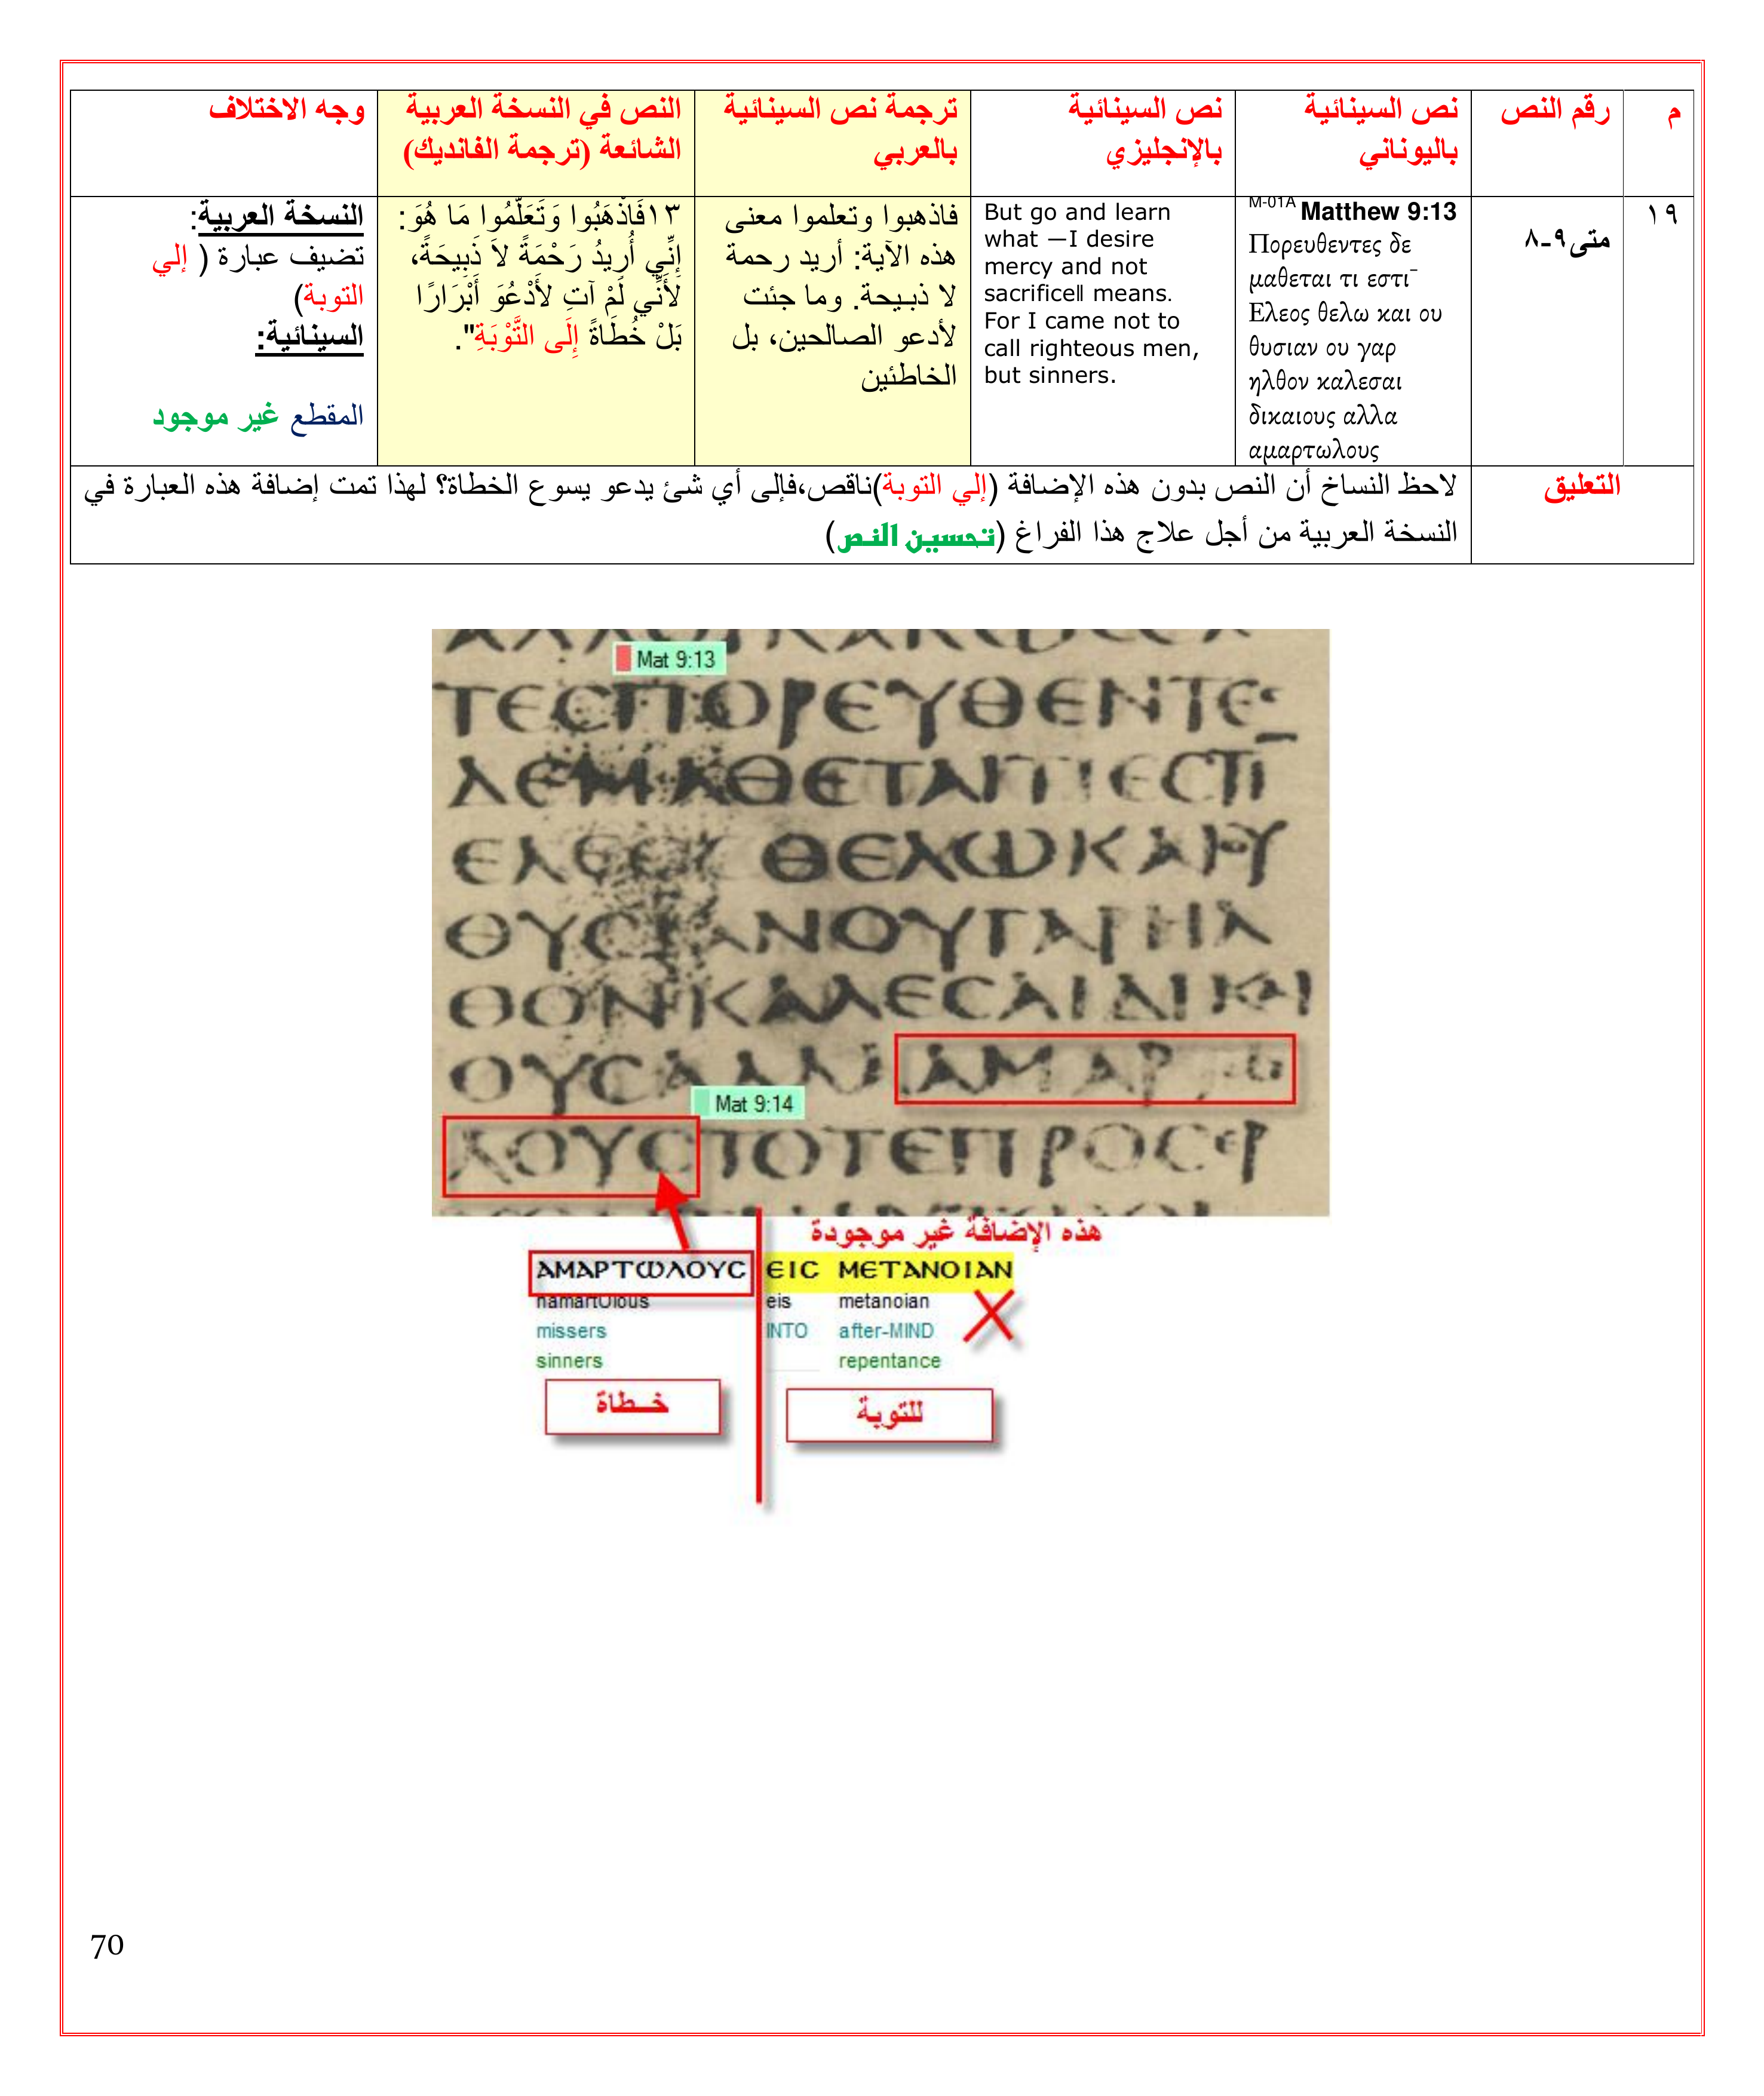 م
رقم النص
نص السينائية
باليوناني
نص السينائية
بالإنجليزي
ترجمة نص السينائية
بالعربي
النص في النسخة العربية
الشائعة (ترجمة الفانديك)
وجه الاختلاف
١٩
متى٩-٨
M-01A Matthew 9:13
Πορευθεντες δε
μαθεται τι εστι¯
Ελεος θελω και ου
θυσιαν ου γαρ
ηλθον καλεσαι
δικαιους αλλα
αμαρτωλους
But go and learn
what —I desire
mercy and not
sacrifice‖ means.
For I came not to
call righteous men,
but sinners.
فاذهبوا وتعلموا معنى
هذه الآية: أريد رحمة
لا ذبيحة. وما جئت
لأدعو الصالحين، بل
الخاطئين
١٣فَاذْهَبُوا وَتَعَلَّمُوا مَا هُوَ:
إِنِّي أُرِيدُ رَحْمَةً لاَ ذَبِيحَةً،
لأَنِّي لَمْ آتِ لأَدْعُوَ أَبْرَارًا
بَلْ خُطَاةً إِلَى التَّوْبَةِ".
النسخة العربية:
تضيف عبارة ( إلي
التوبة)
السينائية:
المقطع غير موجود
التعليق
لاحظ النساخ أن النص بدون هذه الإضافة (إلي التوبة)ناقص،فإلى أي شئ يدعو يسوع الخطاة؟ لهذا تمت إضافة هذه العبارة في
النسخة العربية من أجل علاج هذا الفراغ (تحسين النص)
Mat 9:13
ΤΕCΠΟΡΕΥΘΕΝΤΕC
ΔΕΜΑΘΕΤΑΙΤΙΕCΤΙ
ΘΕΛΩΚΑΙΟΥ
ΘΥCΙΑΝΟΥΓΑΡΗΛ
ΘΟΝΚΑΛΕCΑΙΔΙΚΑΙ
ΟΥCΑΛΛΑΑΜΑΡΤΩ
Mat 9:14
ΛΟΥCΤΟΤΕΠΡΟCΕΡ
هذه الإضافة غير موجودة
ΑΜΑΡΤΩΛΟΥC ΕΙC ΜΕΤΑΝΟΙΑΝ
hamartOlous eis metanoian
missers INTO after-MIND
sinners repentance
خـطاة
للتوبة
70